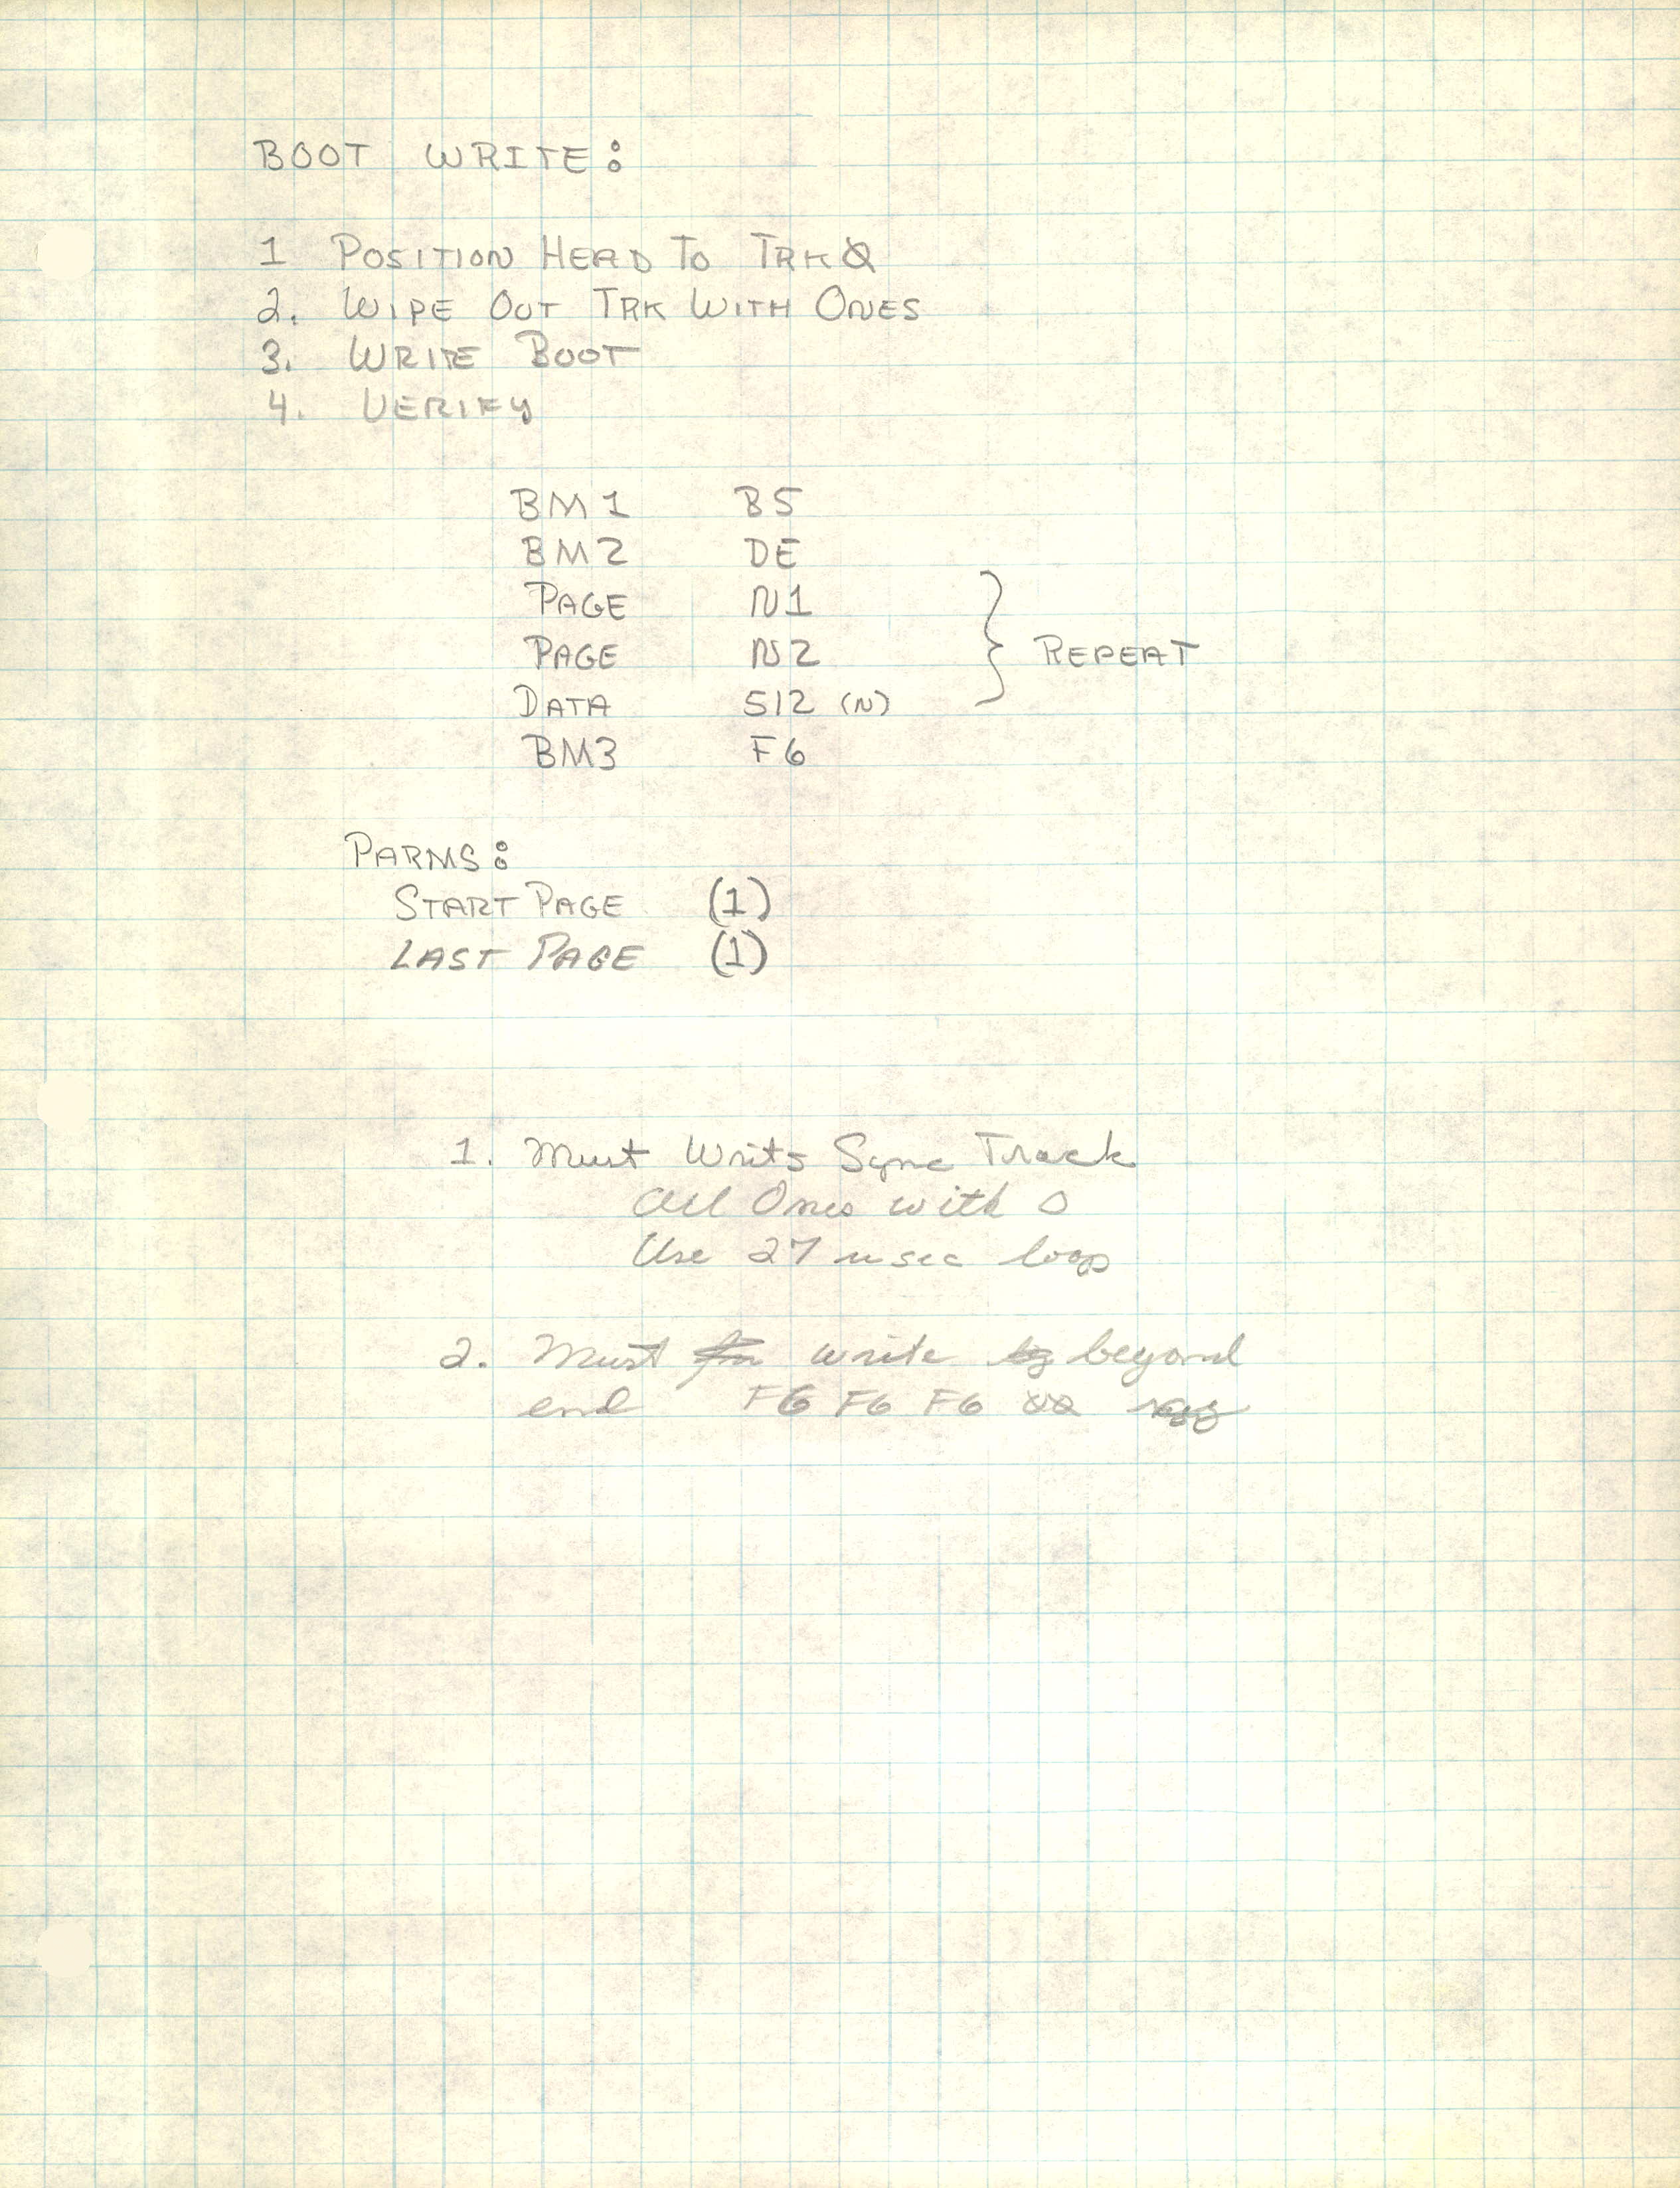 BOOT WRITE:
1 POSITION HEAD TO TRK0
2. WIPE OUT TRK WITH ONES
3. WRITE BOOT
4. VERIFY
BM1 B5
BM2 DE
PAGE N1
PAGE N2 } REPEAT
DATA 512 (N)
BM3 F6
PARMS:
START PAGE (1)
LAST PAGE (1)
1. Must Write Sync Track
All Ones with 0
Use 27 usec loop
2. Must write beyond
end F6 F6 F6 00